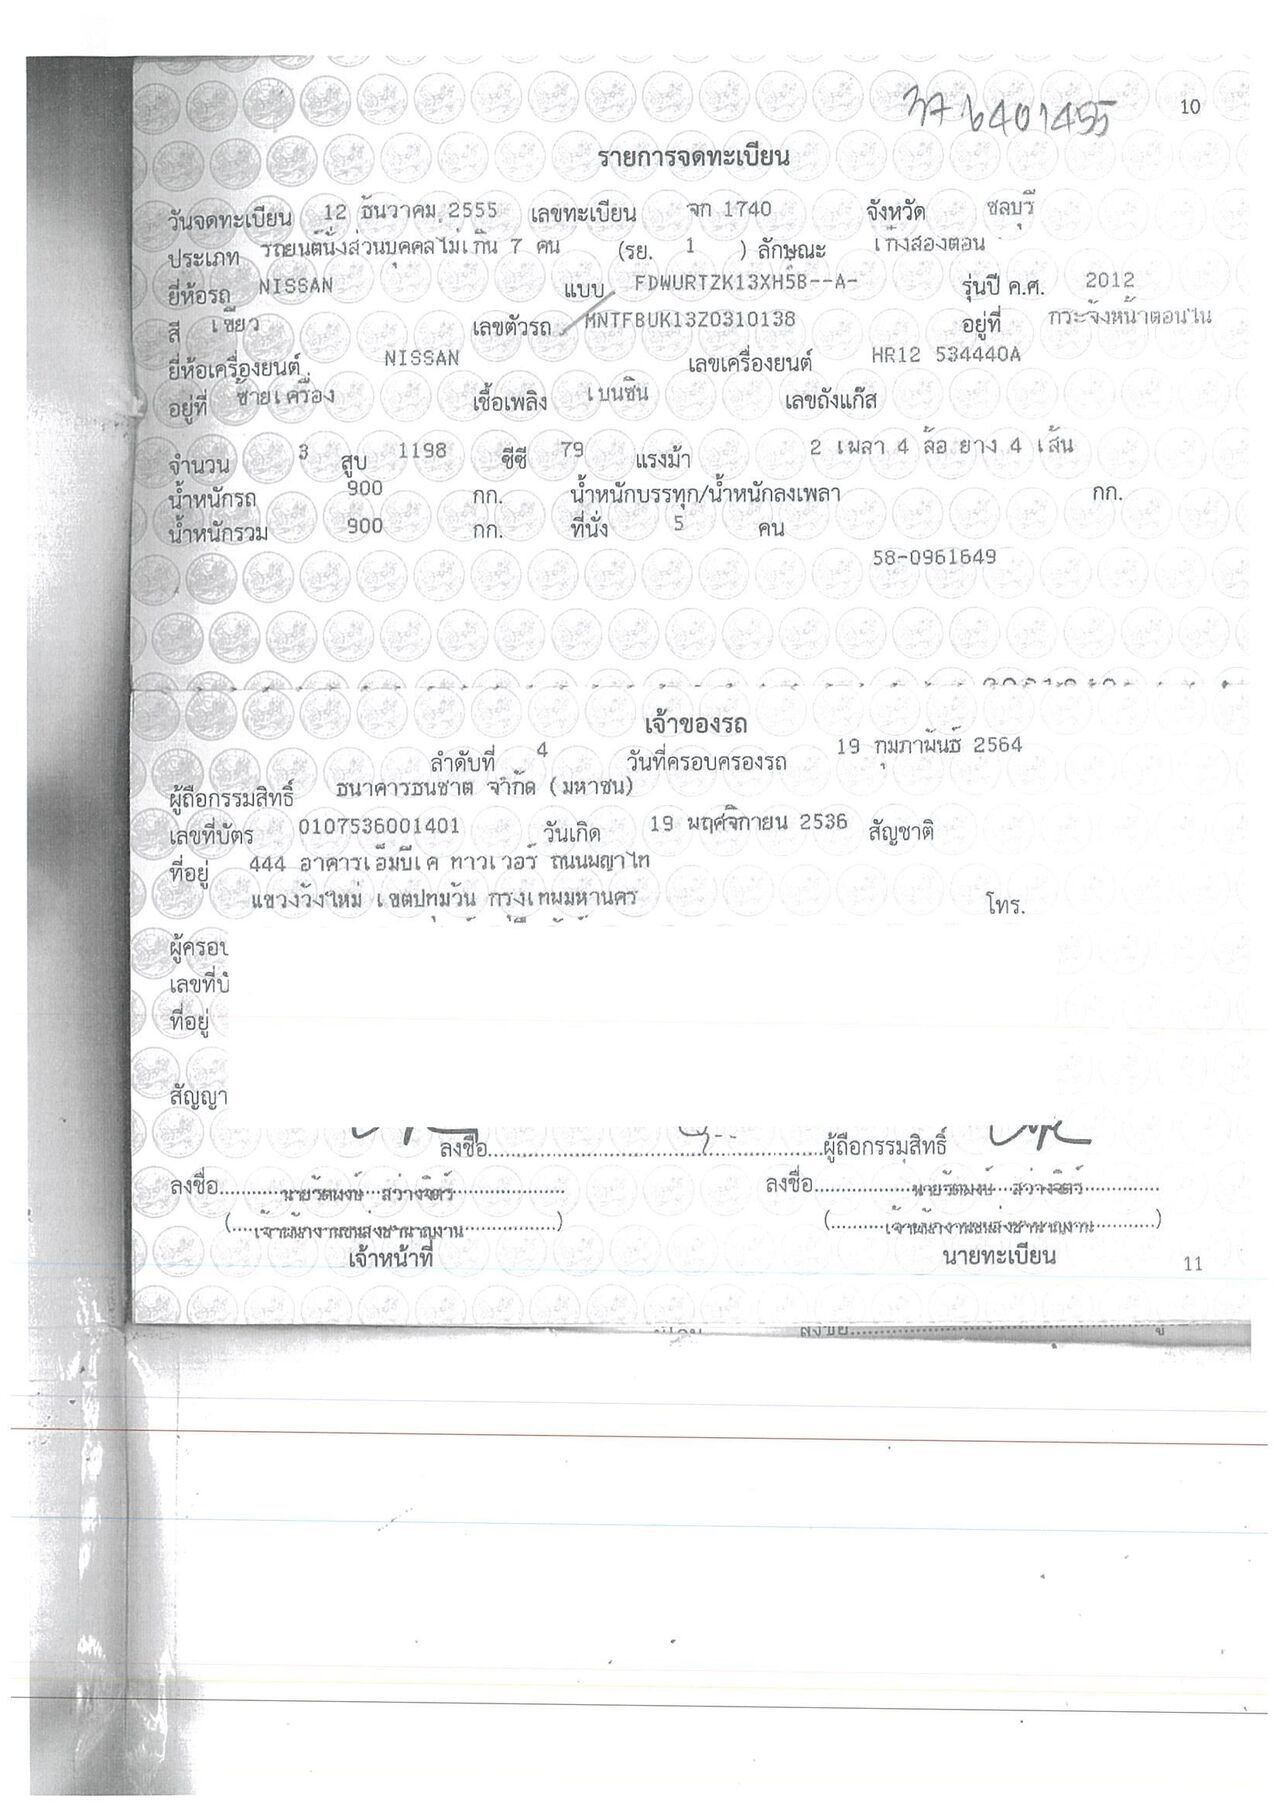 10
รายการจดทะเบียน
วันจดทะเบียน 12 ธันวาคม 2555 เลขทะเบียน จก 1740 จังหวัด ชลบุรี
ประเภท รถยนต์นั่งส่วนบุคคลไม่เกิน 7 คน (รย. 1 ) ลักษณะ เก๋งสองตอน
ยี่ห้อรถ NISSAN แบบ FDWURTZK13XH5B--A- รุ่นปี ค.ศ. 2012
สี เขียว เลขตัวรถ MNTFBUK13Z0310138 อยู่ที่ กระจังหน้าตอนใน
ยี่ห้อเครื่องยนต์ NISSAN เลขเครื่องยนต์ HR12 534440A
อยู่ที่ ซ้ายเครื่อง เชื้อเพลิง เบนซิน เลขถังแก๊ส
จำนวน 3 สูบ 1198 ซีซี 79 แรงม้า 2 เพลา 4 ล้อ ยาง 4 เส้น
น้ำหนักรถ 900 กก. น้ำหนักบรรทุก/น้ำหนักลงเพลา กก.
น้ำหนักรวม 900 กก. ที่นั่ง 5 คน
58-0961649
เจ้าของรถ
ลำดับที่ 4 วันที่ครอบครองรถ 19 กุมภาพันธ์ 2564
ผู้ถือกรรมสิทธิ์ ธนาคารธนชาต จำกัด (มหาชน)
เลขที่บัตร 0107536001401 วันเกิด 19 พฤศจิกายน 2536 สัญชาติ
ที่อยู่ 444 อาคารเอ็มบีเค ทาวเวอร์ ถนนพญาไท
แขวงวังใหม่ เขตปทุมวัน กรุงเทพมหานคร โทร.
ผู้ครอบ
เลขที่บั
ที่อยู่
สัญญา
ลงชื่อ..............................ผู้ถือกรรมสิทธิ์
ลงชื่อ.......นายรัตพงษ์ สว่างจิตร์....... ลงชื่อ.......นายรัตพงษ์ สว่างจิตร์.......
(....เจ้าพนักงานขนส่งชำนาญงาน....) (....เจ้าพนักงานขนส่งชำนาญงาน....)
เจ้าหน้าที่ นายทะเบียน
11